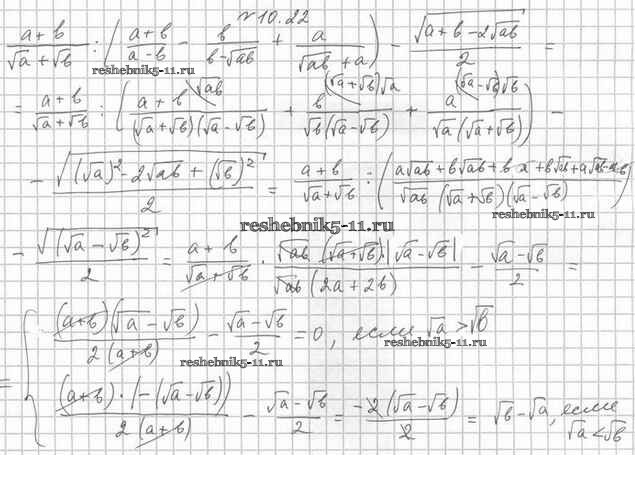 №10.22
(a+b)/(√a+√b) : ((a+b)/(a-b) - b/(b-√ab) + a/(√ab+a)) - √(a+b-2√ab)/2 =
reshebnik5-11.ru
= (a+b)/(√a+√b) : ((a+b)^(√ab)/((√a+√b)(√a-√b)) + b^((√a+√b)√a)/(√b(√a-√b)) + a^((√a-√b)√b)/(√a(√a+√b))) -
- √((√a)²-2√ab+(√b)²)/2 = (a+b)/(√a+√b) : ((a√ab+b√ab+b·a+b√ab+a√ab-ab)/(√ab(√a+√b)(√a-√b)))
reshebnik5-11.ru
- √((√a-√b)²)/2 = (a+b)/(√a+√b) · (√ab·(√a+√b)·|√a-√b|)/(√ab(2a+2b)) - (√a-√b)/2 =
= { ((a+b)(√a-√b))/(2(a+b)) - (√a-√b)/2 = 0, если √a>√b
reshebnik5-11.ru
reshebnik5-11.ru
((a+b)·(-(√a-√b)))/(2(a+b)) - (√a-√b)/2 = -2(√a-√b)/2 = √b-√a, если √a<√b